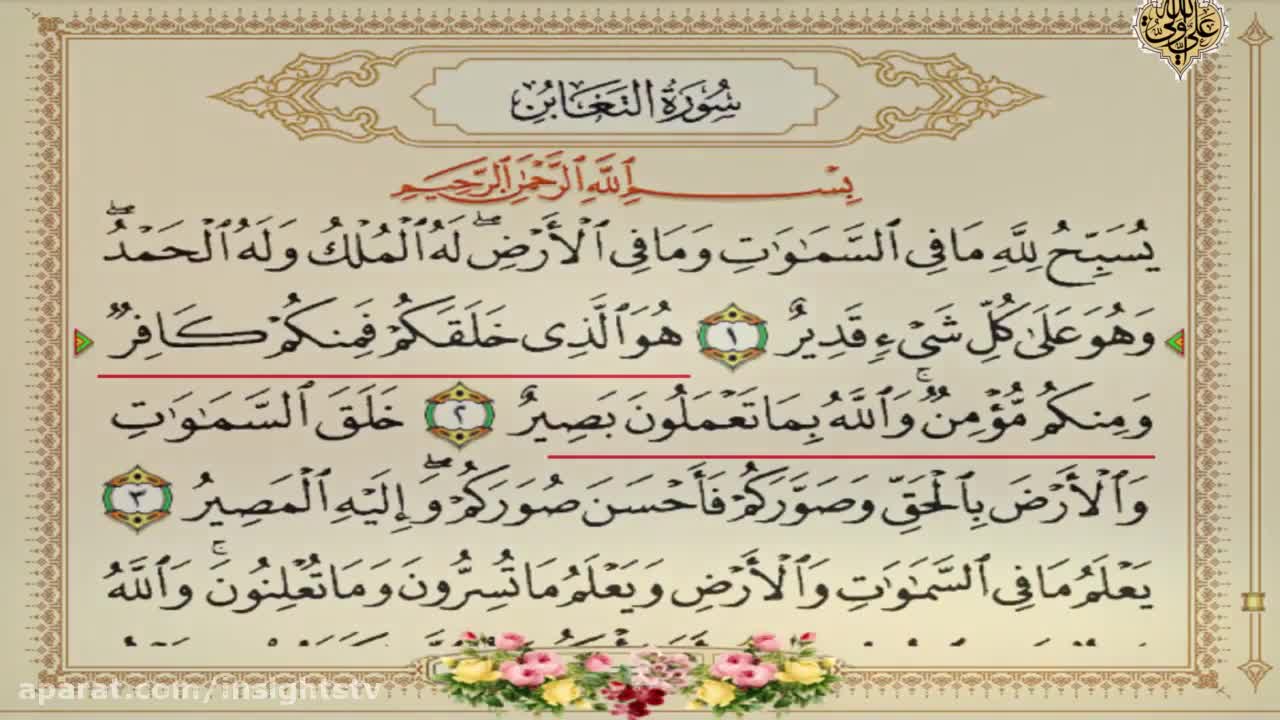 سُورَةُ التَّغَابُنِ
بِسْمِ ٱللَّهِ ٱلرَّحْمَٰنِ ٱلرَّحِيمِ
يُسَبِّحُ لِلَّهِ مَا فِى ٱلسَّمَٰوَٰتِ وَمَا فِى ٱلْأَرْضِۖ لَهُ ٱلْمُلْكُ وَلَهُ ٱلْحَمْدُۖ
وَهُوَ عَلَىٰ كُلِّ شَىْءٍ قَدِيرٌ ١ هُوَ ٱلَّذِى خَلَقَكُمْ فَمِنكُمْ كَافِرٌ
وَمِنكُم مُّؤْمِنٌۚ وَٱللَّهُ بِمَا تَعْمَلُونَ بَصِيرٌ ٢ خَلَقَ ٱلسَّمَٰوَٰتِ
وَٱلْأَرْضَ بِٱلْحَقِّ وَصَوَّرَكُمْ فَأَحْسَنَ صُوَرَكُمْۖ وَإِلَيْهِ ٱلْمَصِيرُ ٣
يَعْلَمُ مَا فِى ٱلسَّمَٰوَٰتِ وَٱلْأَرْضِ وَيَعْلَمُ مَا تُسِرُّونَ وَمَا تُعْلِنُونَۚ وَٱللَّهُ
aparat.com/insightstv